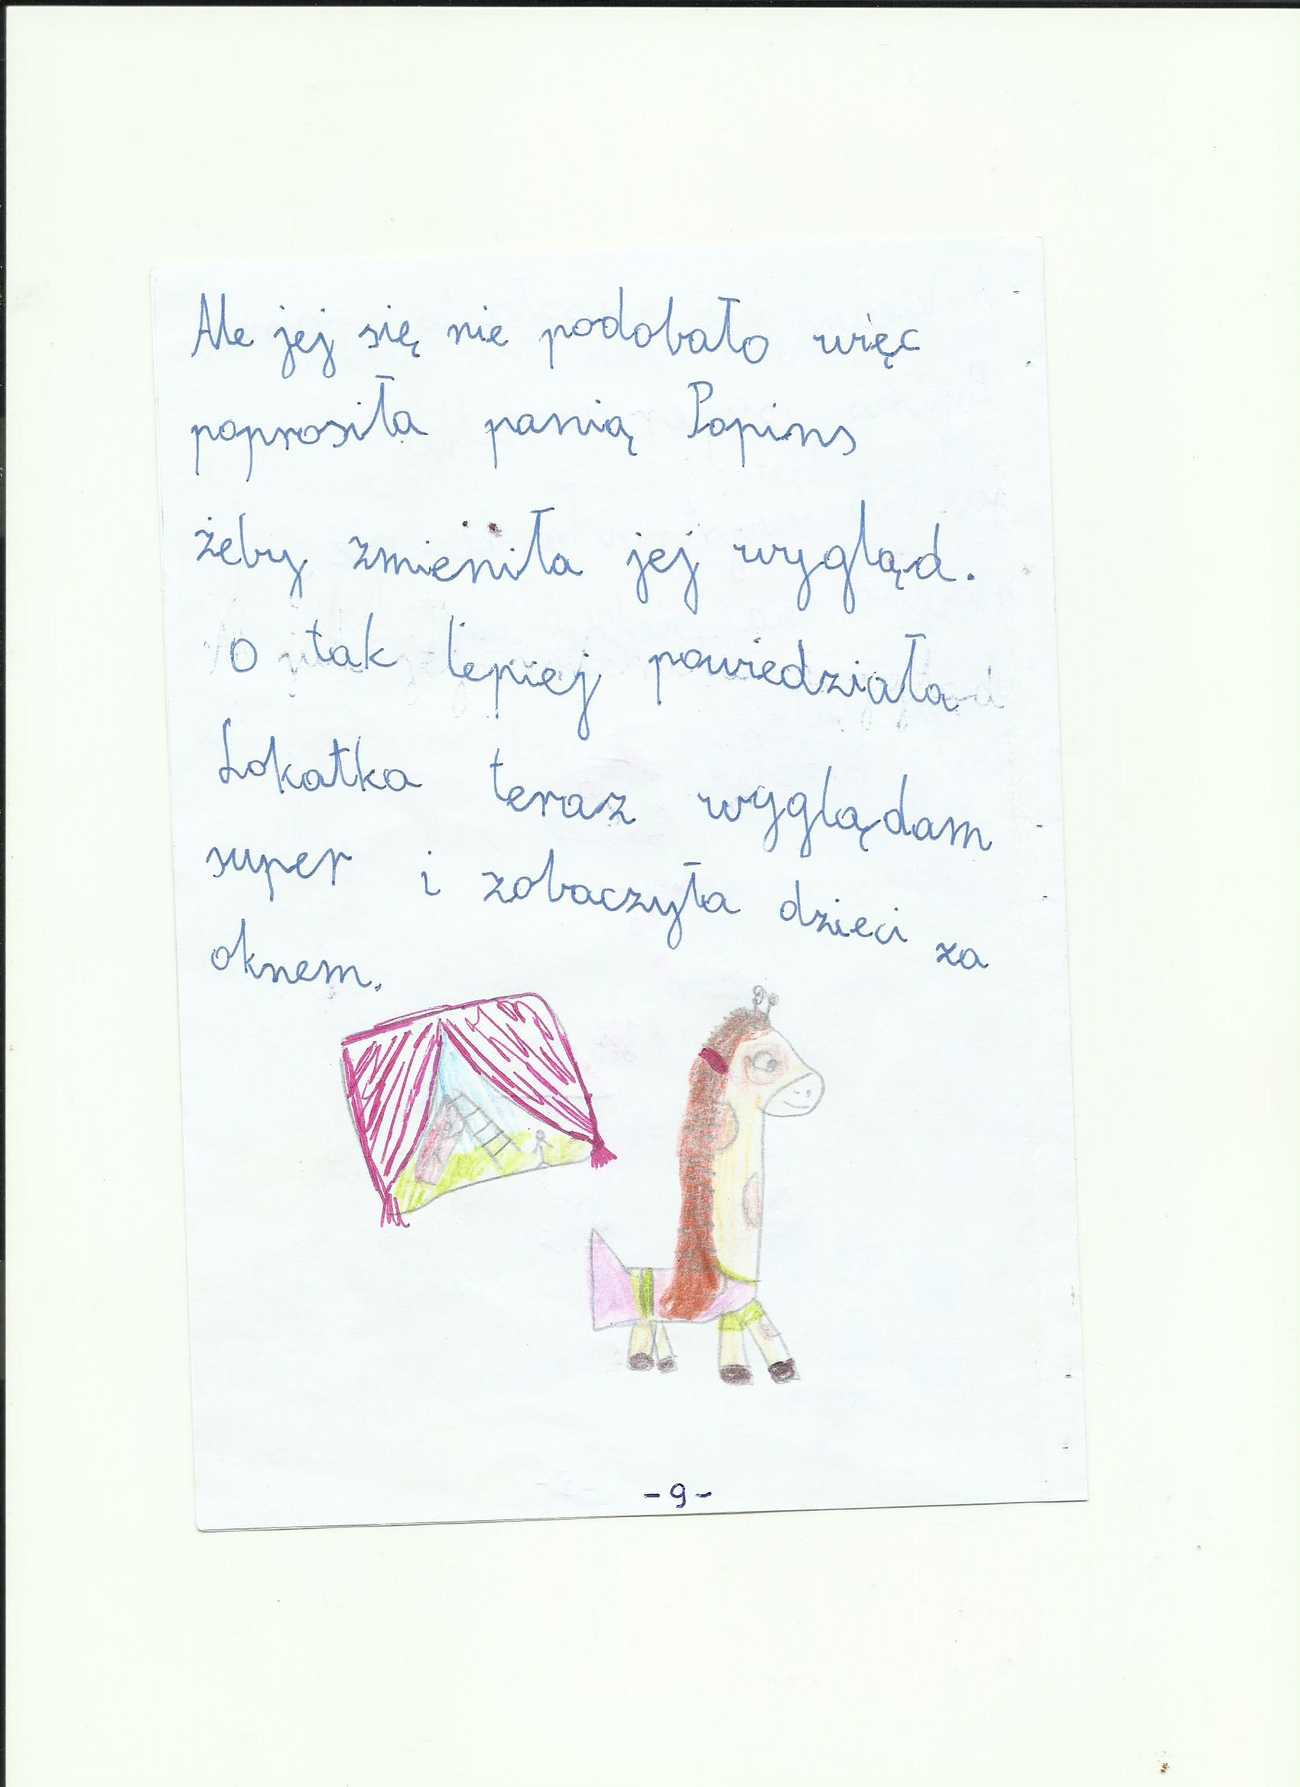 Ale jej się nie podobało więc
poprosiła panią Popins
żeby zmieniła jej wygląd.
O tak lepiej powiedziała
Lokatka teraz wyglądam
super i zobaczyła dzieci za
oknem.
-9-